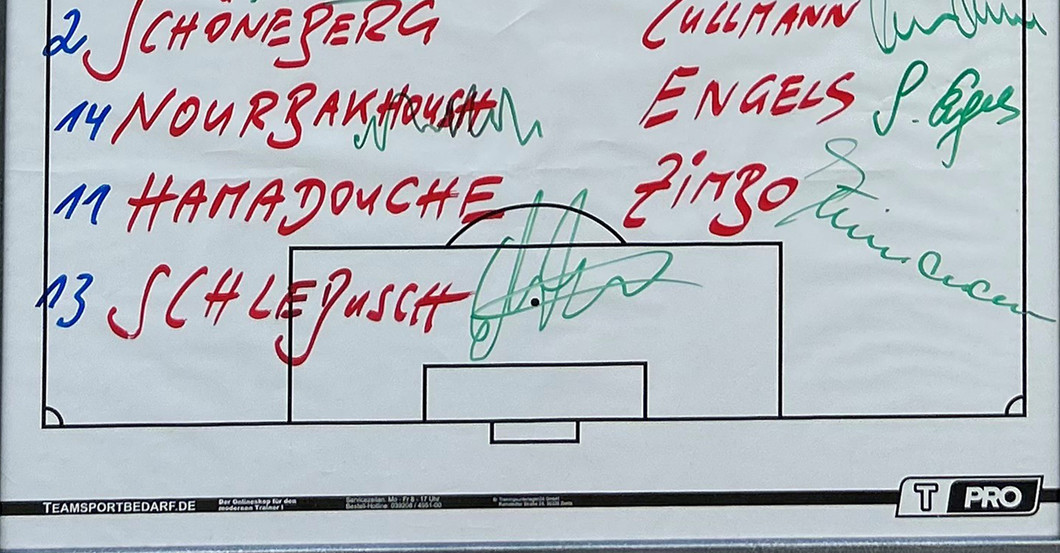 2 SCHÖNEBERG CULLMANN
14 NOURBAKHSH ENGELS S. Engels
11 HAMADOUCHE ZIMBO
13 SCHLEBUSCH
TEAMSPORTBEDARF.DE Der Onlineshop für den Servicezeiten: Mo - Fr 8 - 17 Uhr
modernen Trainer! Bestell-Hotline:
T PRO